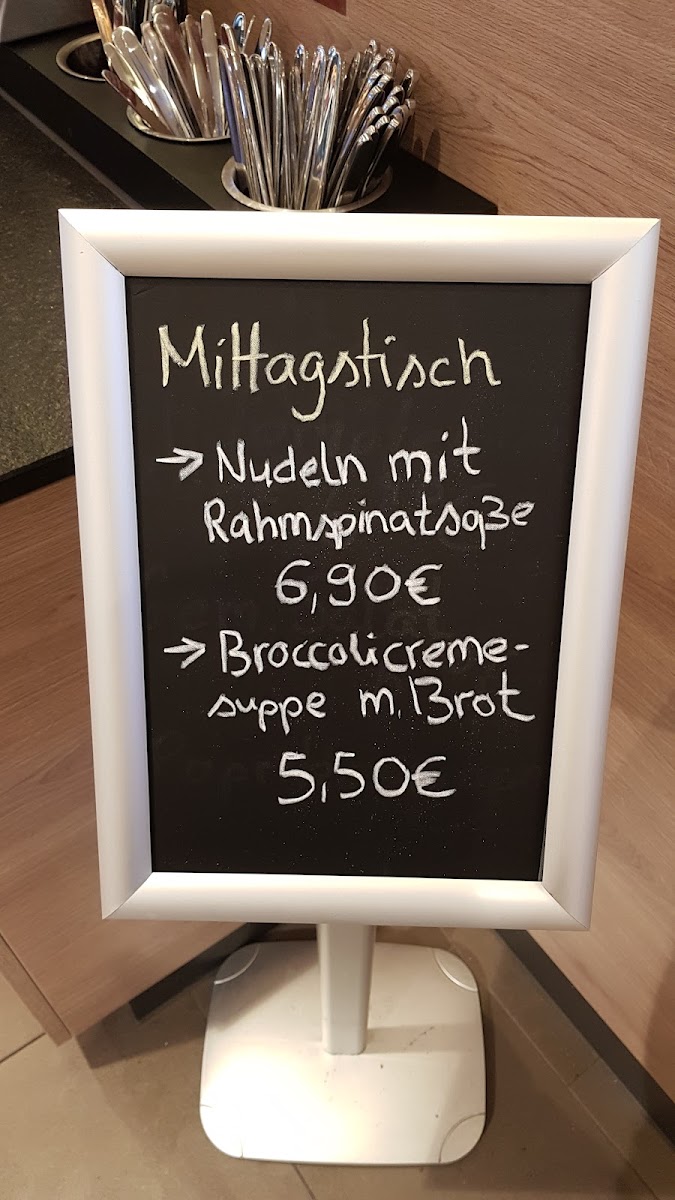 Mittagstisch
→ Nudeln mit
Rahmspinatsoße
6,90€
→ Broccolicreme-
suppe m. Brot
5,50€